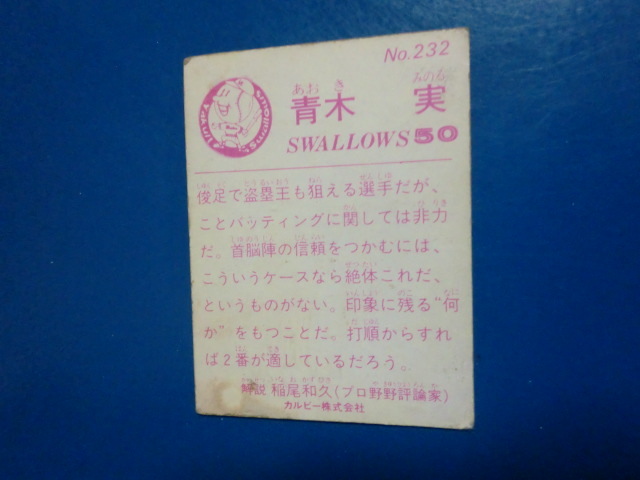 No.232
あおき みのる
青木 実
SWALLOWS 50
俊足で盗塁王も狙える選手だが、
ことバッティングに関しては非力
だ。首脳陣の信頼をつかむには、
こういうケースなら絶体これだ、
というものがない。印象に残る"何
か"をもつことだ。打順からすれ
ば2番が適しているだろう。
解説 稲尾和久(プロ野野評論家)
カルビー株式会社